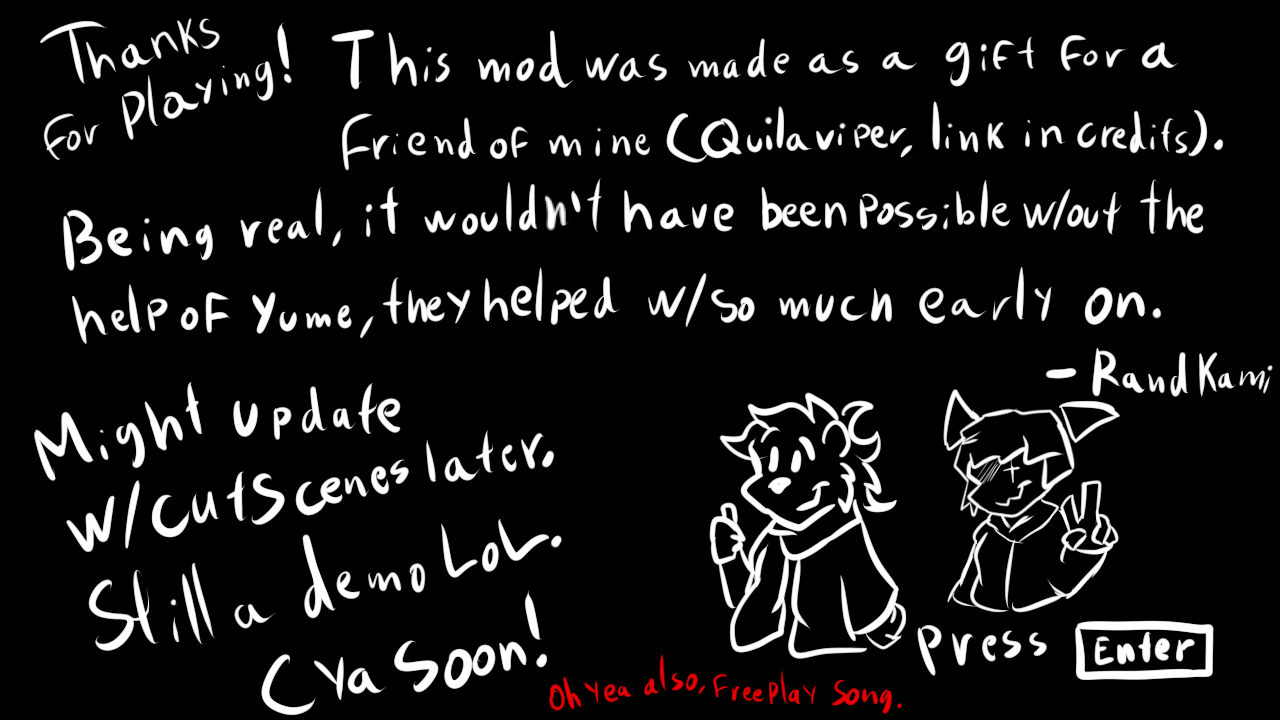 Thanks
for playing!
This mod was made as a gift for a
friend of mine (Quilaviper, link in credits).
Being real, it wouldn't have been possible w/out the
help of Yume, they helped w/so much early on.
- RandKami
Might update
w/cutscenes later.
Still a demo LoL.
Cya Soon!
Press Enter
Oh yea also, Freeplay song.